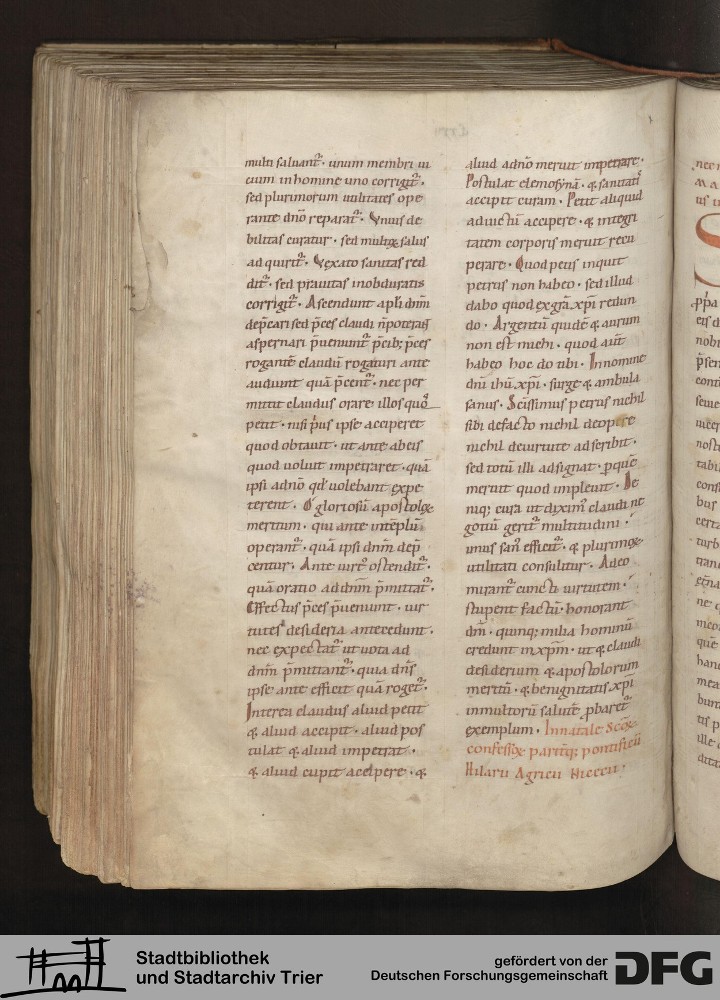 multi saluant᷑. unum membri ui
cium in homine uno corrigit᷑.
sed plurimorum utilitates ope
rante dn̄o reparat᷑. Vnius de
bilitas curatur. sed multoꝝ salus
adquirit᷑. Vexato sanitas red
dit᷑. sed prauitas in obduratis
corrigit᷑. Ascendunt apl̄i dn̄m
dep̄cari sed p̄ces claudi
aspernari p̄ueniunt᷑ p̄cib; p̄ces
rogantē claudū rogaturi ante
audiunt quā p̄cent᷑. nec per
mittit claudus orare illos quo
petit. nisi p̄us ipse acciperet
quod obtauit. ut ante ab eis
quod uoluit impetraret. quā
ipsi ad n̄o qd̄ uolebant expe
terent. O gloriosū apostoloꝝ
meritum. qui ante in tēplū
operant᷑. quā ipsi dn̄m dep̄
centur. Ante uirt᷑ ostendit᷑.
quā oratio ad dn̄m p̄mittat᷑.
Effectus p̄ces p̄ueniunt. uir
tutes desideria antecedunt.
nec expectat᷑ ut uota ad
dn̄m p̄mittant᷑. quia dn̄s
ipse ante efficit quā roget᷑.
Interea claudus aliud petit
& aliud accipit. aliud pos
tulat & aliud impetrat.
& aliud cupit accipere. &
aliud a dn̄o meruit impetrare.
Postulat elemosynā. & sanitati᷑
accipit curam. Petit aliquid
ad uictū accipere. & integri
tatem corporis meruit recu
perare. Quod petis inquit
petrus non habeo. sed illud
dabo quod ex gr̄a xp̄i redun
do. Argentū quidē & aurum
non est michi. quod aut̄
habeo hoc do tibi. In nomine
dn̄i ih̄u xp̄i. surge & ambula
sanus. Sc̄issimus petrus nichil
sibi de facto nichil de opere
nichil de uirtute adscribit.
sed totū illi adsignat. p quē
meruit quod impleuit. De
niq; cura ut diximꝰ claudi ne
gotiū gerit᷑ multitudini.
unius san᷑ efficit᷑. & plurimoꝝ
utilitati consulitur. Adeo
mirant᷑ cuncti uirtutem.
stupent factū. honorant
dm̄. quinq; milia hominū
credunt in xp̄m. ut & claudi
desiderium & apostolorum
meritū. & benignitatis xp̄i
in multorū salutē p̱baret᷑
exemplum. In natale Sc̄oꝝ
confessoꝝ paritq; pontificū
Hilarii Agricii Niceni.
Stadtbibliothek
und Stadtarchiv Trier
gefördert von der
Deutschen Forschungsgemeinschaft
DFG